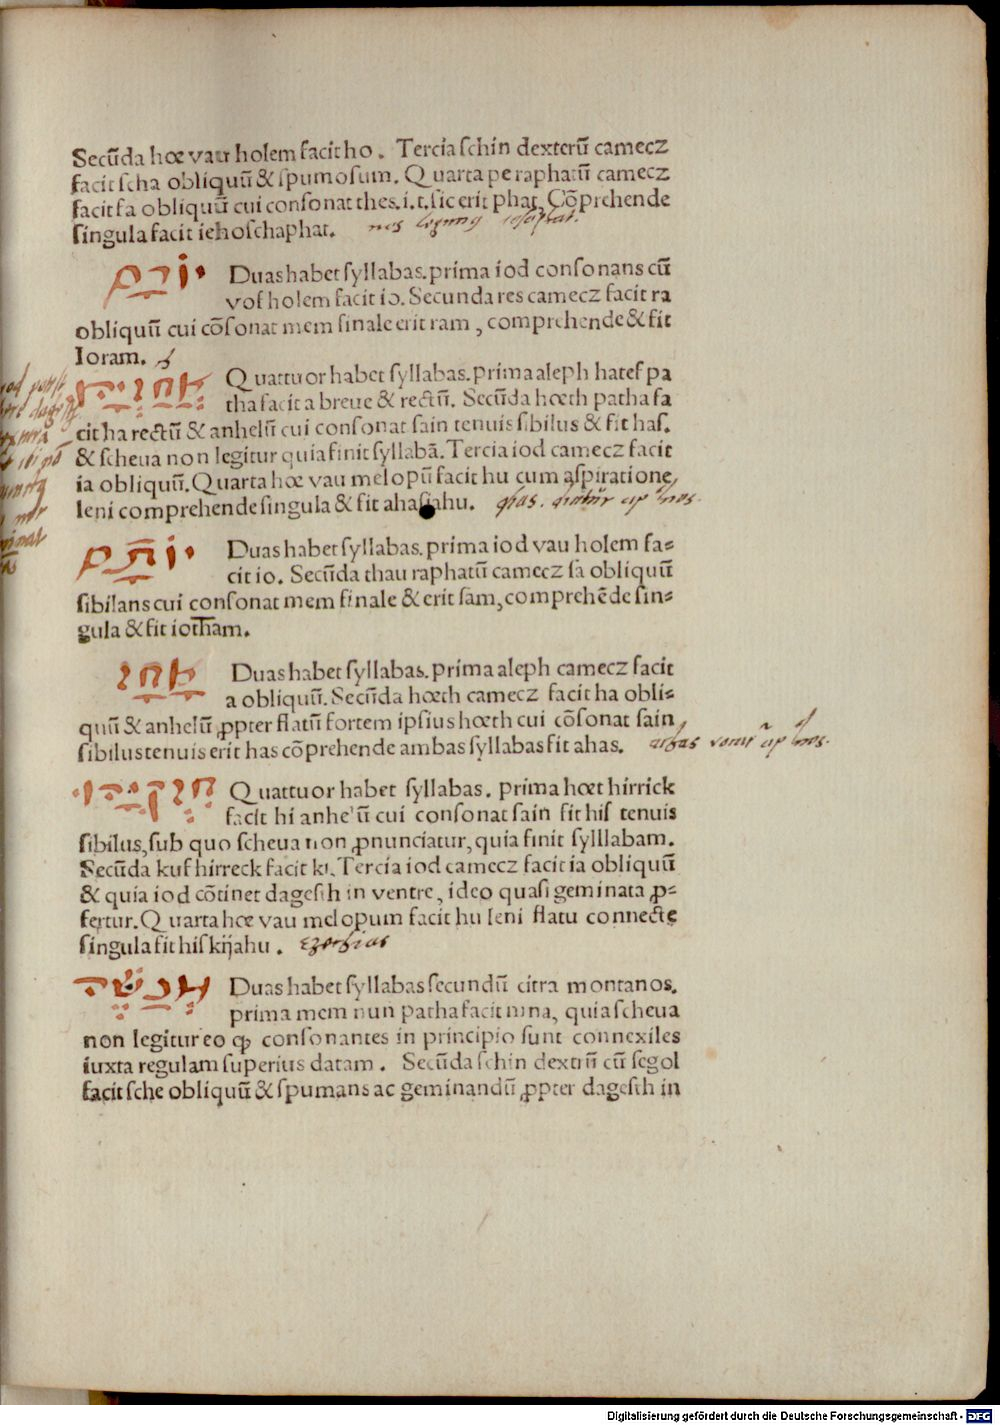 Secūda hœ vau holem facit ho. Tercia schin dexterū camecz
facit scha obliquū & spumosum. Quarta pe raphatū camecz
facit fa obliquū cui consonat thes. i. t. sic erit phat. Cōprehende
singula facit iehoschaphat. nos iosaphat.
יורם Duas habet syllabas. prima iod consonans cū
vof holem facit io. Secunda res camecz facit ra
obliquū cui cōsonat mem finale erit ram, comprehende & fit
Ioram.
אחזיהו Quattuor habet syllabas. prima aleph hatef pa
tha facit a breue & rectū. Secūda hœth patha fa
cit ha rectū & anhelū cui consonat sain tenuis sibilus & fit has.
& scheua non legitur quia finit syllabā. Tercia iod camecz facit
ia obliquū. Quarta hœ vau melopū facit hu cum aspiratione
leni comprehende singula & fit ahasiahu.
יותם Duas habet syllabas. prima iod vau holem fa=
cit io. Secūda thau raphatū camecz sa obliquū
sibilans cui consonat mem finale & erit sam, comprehēde sin=
gula & fit iotham.
אחז Duas habet syllabas. prima aleph camecz facit
a obliquū. Secūda hœth camecz facit ha obli=
quū & anhelū ꝓpter flatū fortem ipsius hœth cui cōsonat sain
sibilus tenuis erit has cōprehende ambas syllabas fit ahas.
חזקיהו Quattuor habet syllabas. prima hœt hirrick
facit hi anhelū cui consonat sain fit his tenuis
sibilus, sub quo scheua non ꝓnunciatur, quia finit sylllabam.
Secūda kuf hirreck facit ki. Tercia iod camecz facit ia obliquū
& quia iod cōtinet dagesch in ventre, ideo quasi geminata ꝓ=
fertur. Quarta hœ vau melopum facit hu leni flatu connecte
singula fit hiskijahu. ezechias
מנשה Duas habet syllabas secundū citra montanos.
prima mem nun patha facit mna, quia scheua
non legitur eo ꝙ consonantes in principio sunt connexiles
iuxta regulam superius datam. Secūda schin dextrū cū segol
facit sche obliquū & spumans ac geminandū ꝓpter dagesch in
Digitalisierung gefördert durch die Deutsche Forschungsgemeinschaft - DFG